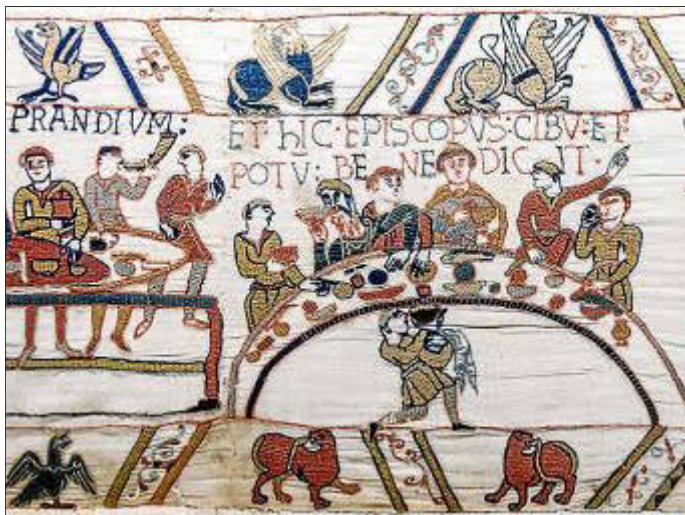 PRANDIVM:
ET hIC·EPISCOPVS:CIBV̄:ET
POTV̄:BE NE DIC IT·